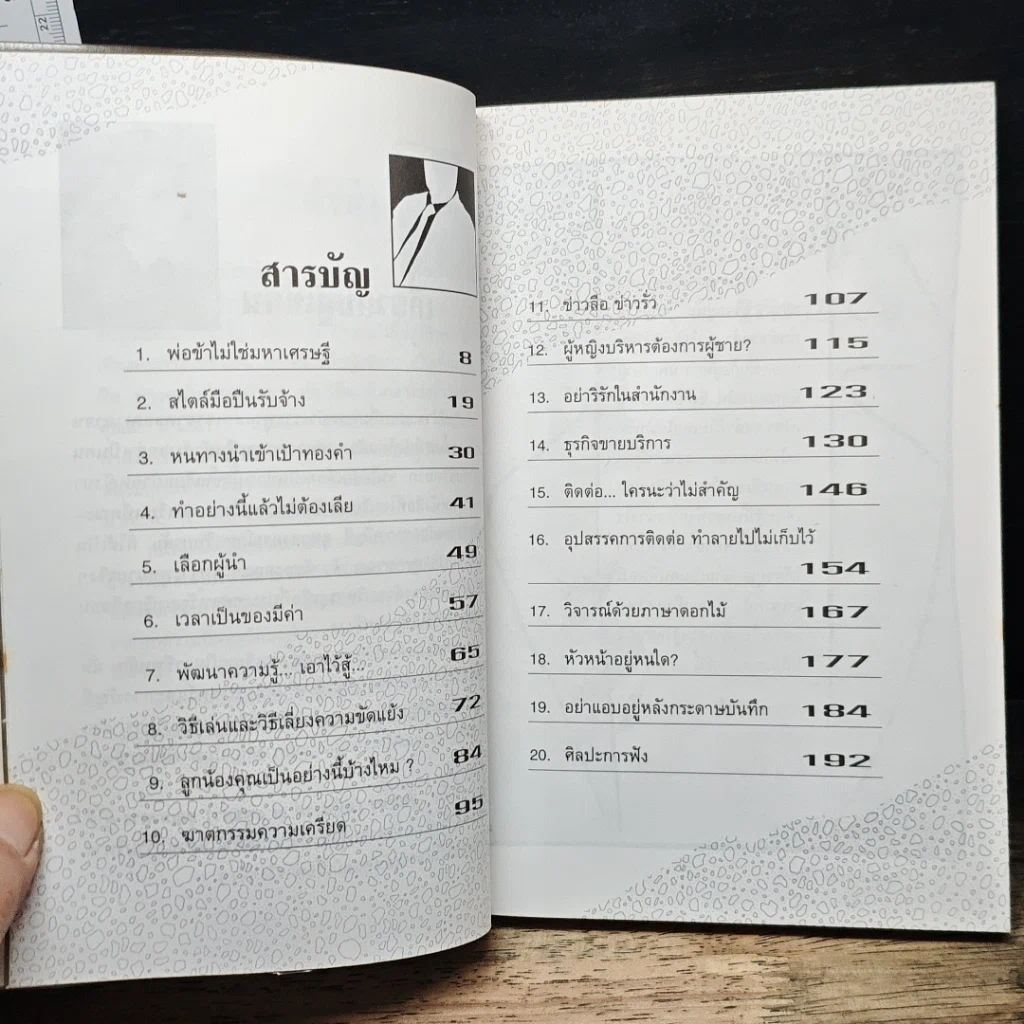 22
สารบัญ
1. พ่อข้าไม่ใช่มหาเศรษฐี 8
2. สไตล์มือปืนรับจ้าง 19
3. หนทางนำเข้าเป้าทองคำ 30
4. ทำอย่างนี้แล้วไม่ต้องเลีย 41
5. เลือกผู้นำ 49
6. เวลาเป็นของมีค่า 57
7. พัฒนาความรู้... เอาไว้สู้... 65
8. วิธีเล่นและวิธีเลี่ยงความขัดแย้ง 72
9. ลูกน้องคุณเป็นอย่างนี้บ้างไหม ? 84
10. ฆาตกรรมความเครียด 95
11. ข่าวลือ ข่าวรั่ว 107
12. ผู้หญิงบริหารต้องการผู้ชาย? 115
13. อย่าริรักในสำนักงาน 123
14. ธุรกิจขายบริการ 130
15. ติดต่อ... ใครนะว่าไม่สำคัญ 146
16. อุปสรรคการติดต่อ ทำลายไปไม่เก็บไว้
154
17. วิจารณ์ด้วยภาษาดอกไม้ 167
18. หัวหน้าอยู่หนใด? 177
19. อย่าแอบอยู่หลังกระดาษบันทึก 184
20. ศิลปะการฟัง 192